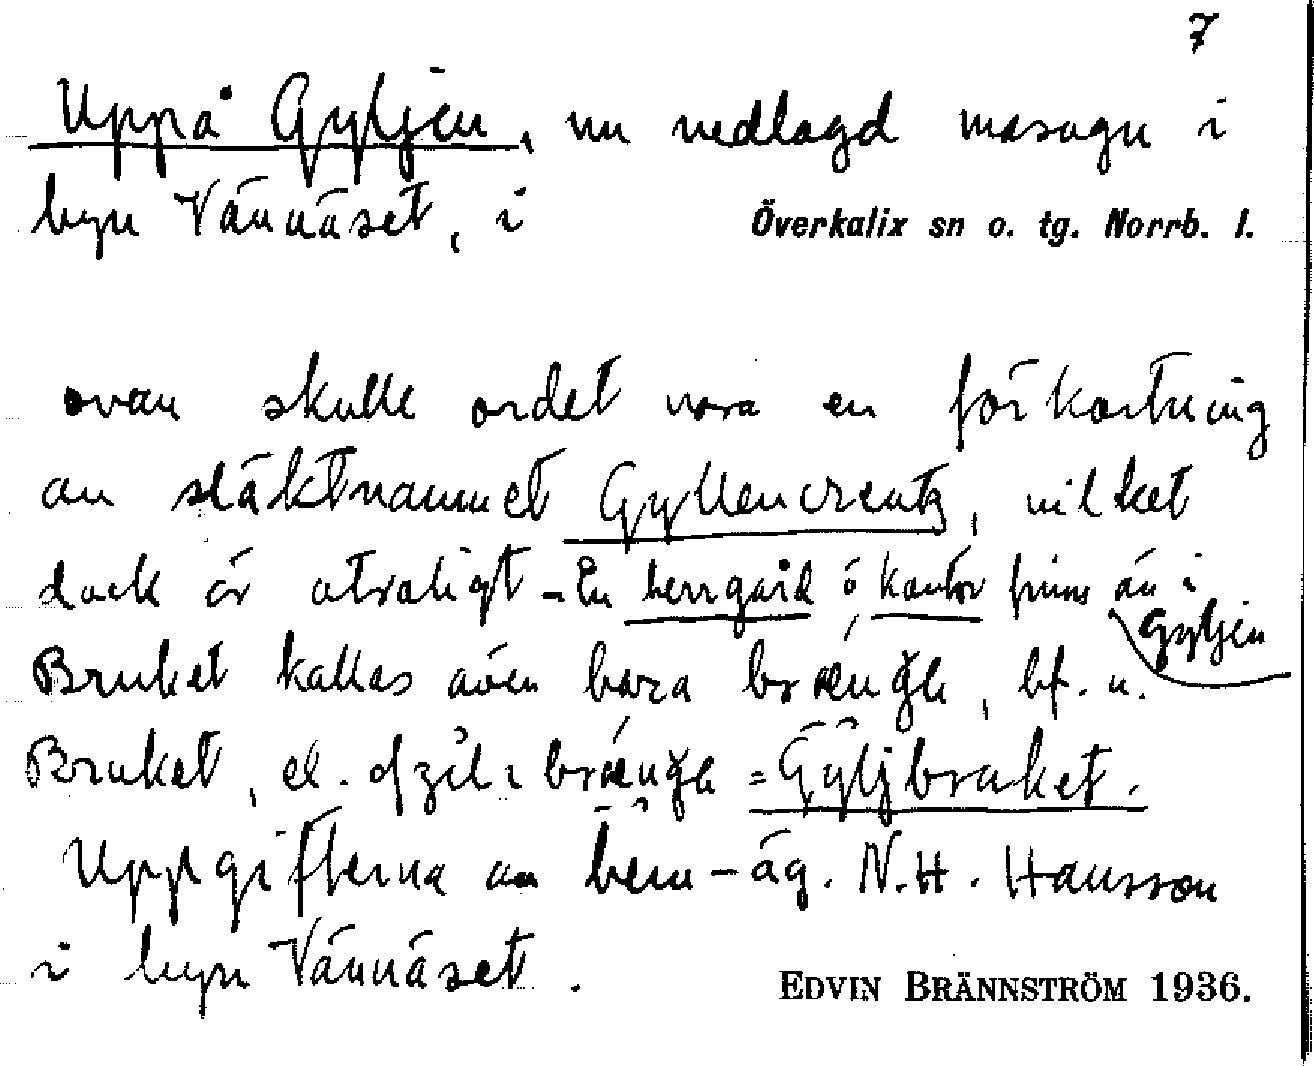 7
Uppå Gyljen, nu nedlagd masugn i
byn Vännäset, i Överkalix sn o. tg. Norrb. l.
ovan skulle ordet vara en förkortning
av släktnamnet Gyllencreutz, vilket
dock är otroligt – En herrgård o kontor finns än i
Gyljen
Bruket kallas även bara , bf. v.
Bruket, el. = Gyljbruket.
Uppgifterna av hem-äg. N.H. Hansson
i byn Vännäset.
EDVIN BRÄNNSTRÖM 1936.